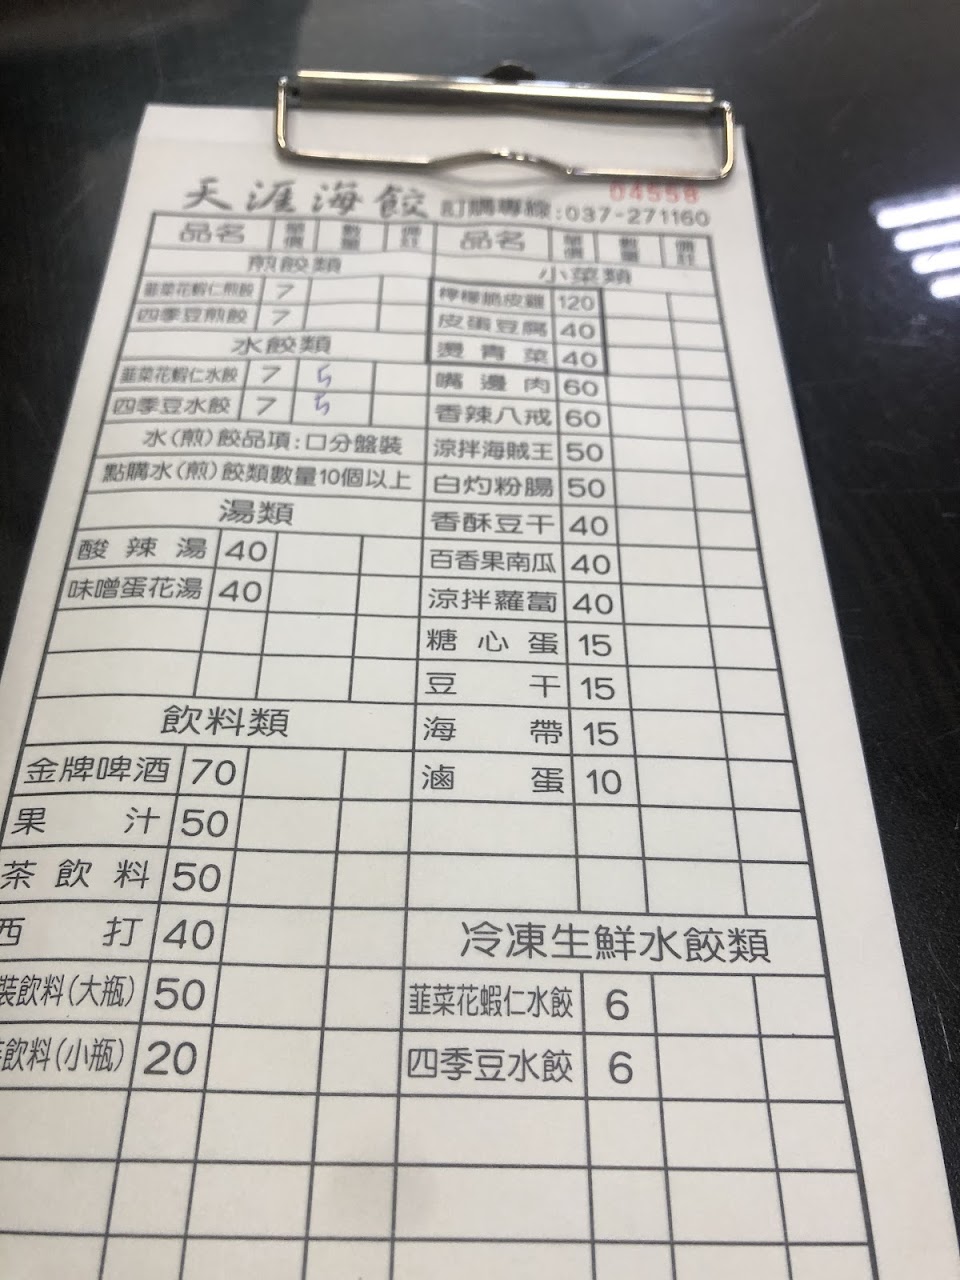 04558
天涯海餃 訂購專線:037-271160
品名 單價 數量 備註
煎餃類
韮菜花蝦仁煎餃 7
四季豆煎餃 7
水餃類
韮菜花蝦仁水餃 7 5
四季豆水餃 7 5
水(煎)餃品項:口分盤裝
點購水(煎)餃類數量10個以上
湯類
酸辣湯 40
味噌蛋花湯 40
飲料類
金牌啤酒 70
果汁 50
茶飲料 50
西打 40
裝飲料(大瓶) 50
飲料(小瓶) 20
品名 單價 數量 備註
小菜類
檸檬脆皮雞 120
皮蛋豆腐 40
燙青菜 40
嘴邊肉 60
香辣八戒 60
涼拌海賊王 50
白灼粉腸 50
香酥豆干 40
百香果南瓜 40
涼拌蘿蔔 40
糖心蛋 15
豆干 15
海帶 15
滷蛋 10
冷凍生鮮水餃類
韮菜花蝦仁水餃 6
四季豆水餃 6